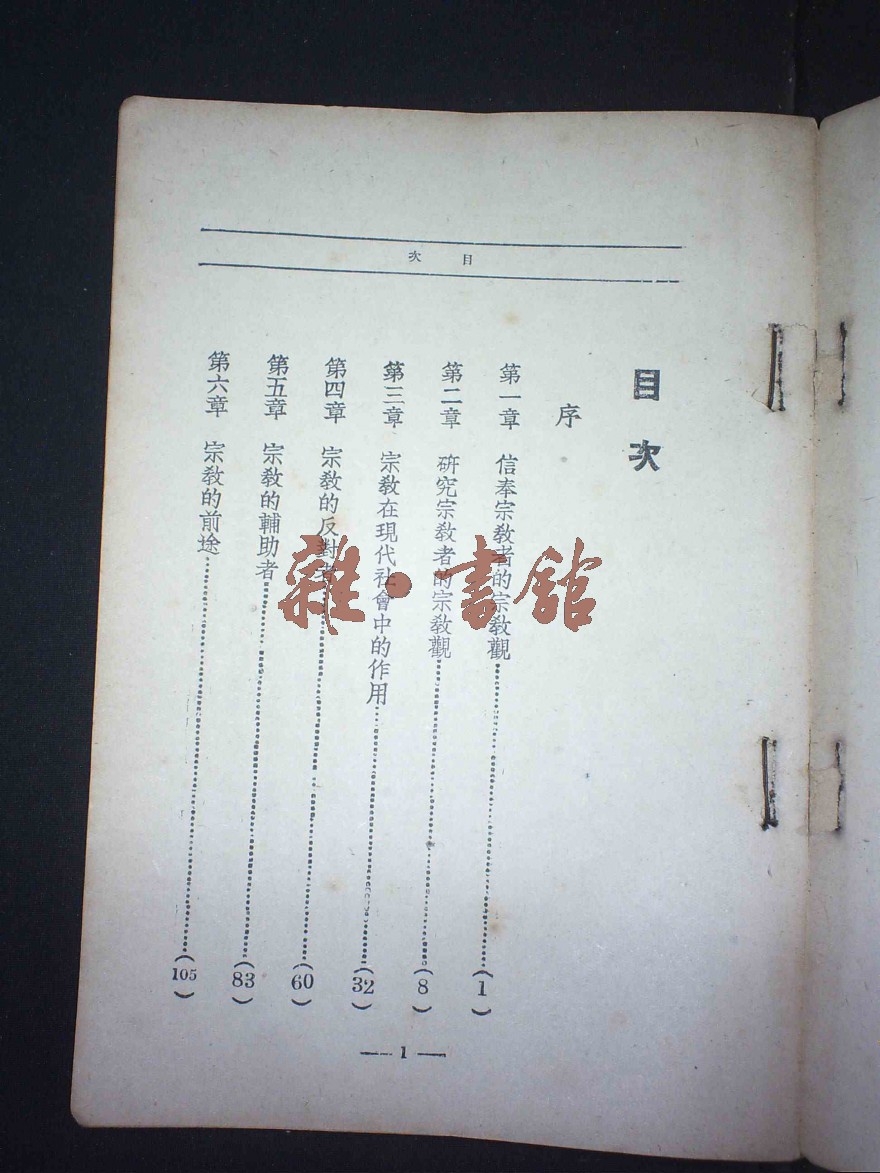 目次
目次
序
第一章 信奉宗教者的宗教觀…………(1)
第二章 研究宗教者的宗教觀…………(8)
第三章 宗教在現代社會中的作用…………(32)
第四章 宗教的反對者…………(60)
第五章 宗教的輔助者…………(83)
第六章 宗教的前途…………(105)
— 1 —
雜·書館